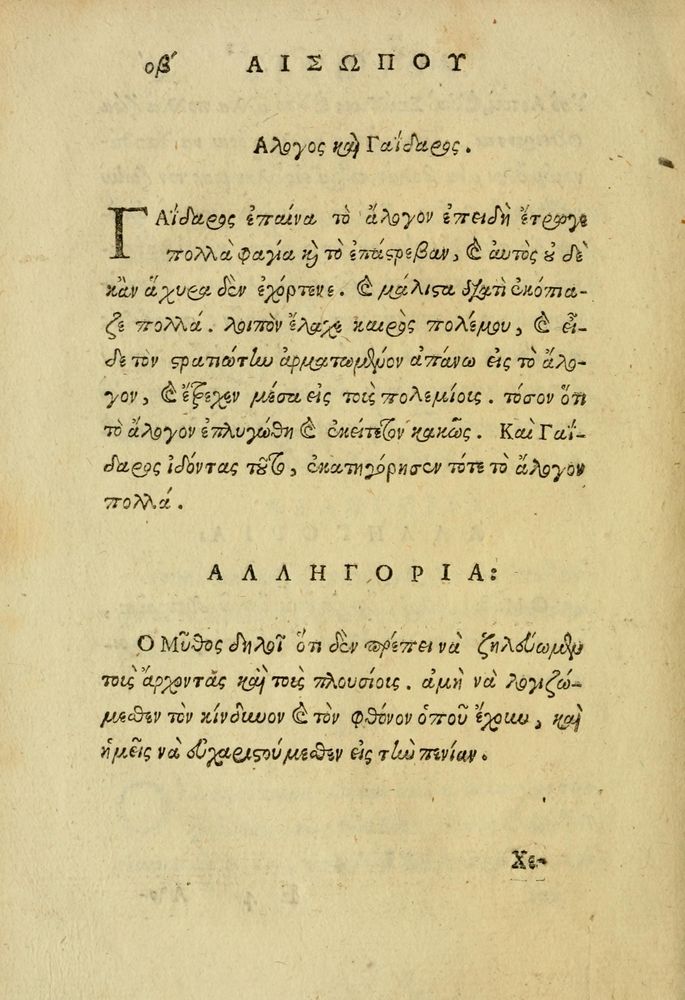 οβʹ ΑΙΣΩΠΟΥ
Αλογος καὶ Γαΐδαρος.
ΓΑΐδαρος ἐπαίνα τὸ ἄλογον ἐπειδὴ ἔτρωγε
πολλὰ φαγία κ̀ τὸ ἐπάςρεβαν, ϗ αὐτὸς ȣ̓δὲ
κἂν ἄχυρα δὲν ἐχόρτενε. ϗ μάλιςα διατὶ ἐκόπια-
ζε πολλά. λοιπὸν ἔλαχε καιρὸς πολέμου, ϗ εἶ-
δε τὸν ςρατιώτην ἀρματωμένον ἀπάνω εἰς τὸ ἄλο-
γον, ϗ ἔξεχεν μέσα εἰς τοὶς πολεμίοις. τόσον ὅτι
τὸ ἄλογον ἐπλυγώθη ϗ ἐκείτετον κακῶς. Καὶ Γαΐ-
δαρος ἰδόντας τȣ͂το, ἐκατηγόρησεν τότε τὸ ἄλογον
πολλά.
ΑΛΛΗΓΟΡΙΑ:
Ο Μῦθος δηλοῖ ὅτι δὲν πρέπει νὰ ζηλεύωμεν
τοὶς ἄρχοντάς καὶ τοὶς πλουσίοις. ἀμὴ νὰ λογιζώ-
μεθεν τὸν κίνδυνον ϗ τὸν φθόνον ὁποῦ ἔχουν, καὶ
ἡμεῖς νὰ εὐχαριςούμεθεν εἰς τὴν πενίαν.
Χε-